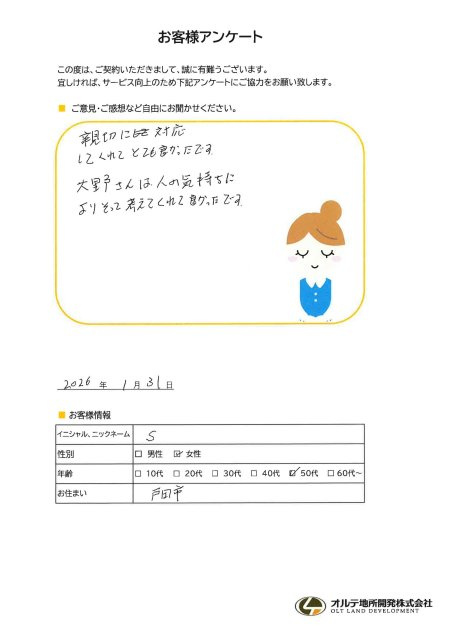 お客様アンケート
この度は、ご契約いただきまして、誠に有難うございます。
宜しければ、サービス向上のため下記アンケートにご協力をお願い致します。
■ ご意見・ご感想など自由にお聞かせください。
親切に対応
してくれてとても良かったです。
大野さんは人の気持ちに
よりそって考えてくれて良かったです。
2026 年 1 月 31 日
■ お客様情報
イニシャル、ニックネーム S
性別 □ 男性 ☑ 女性
年齢 □ 10代 □ 20代 □ 30代 □ 40代 ☑ 50代 □ 60代～
お住まい 戸田市
オルテ地所開発株式会社
OLT LAND DEVELOPMENT